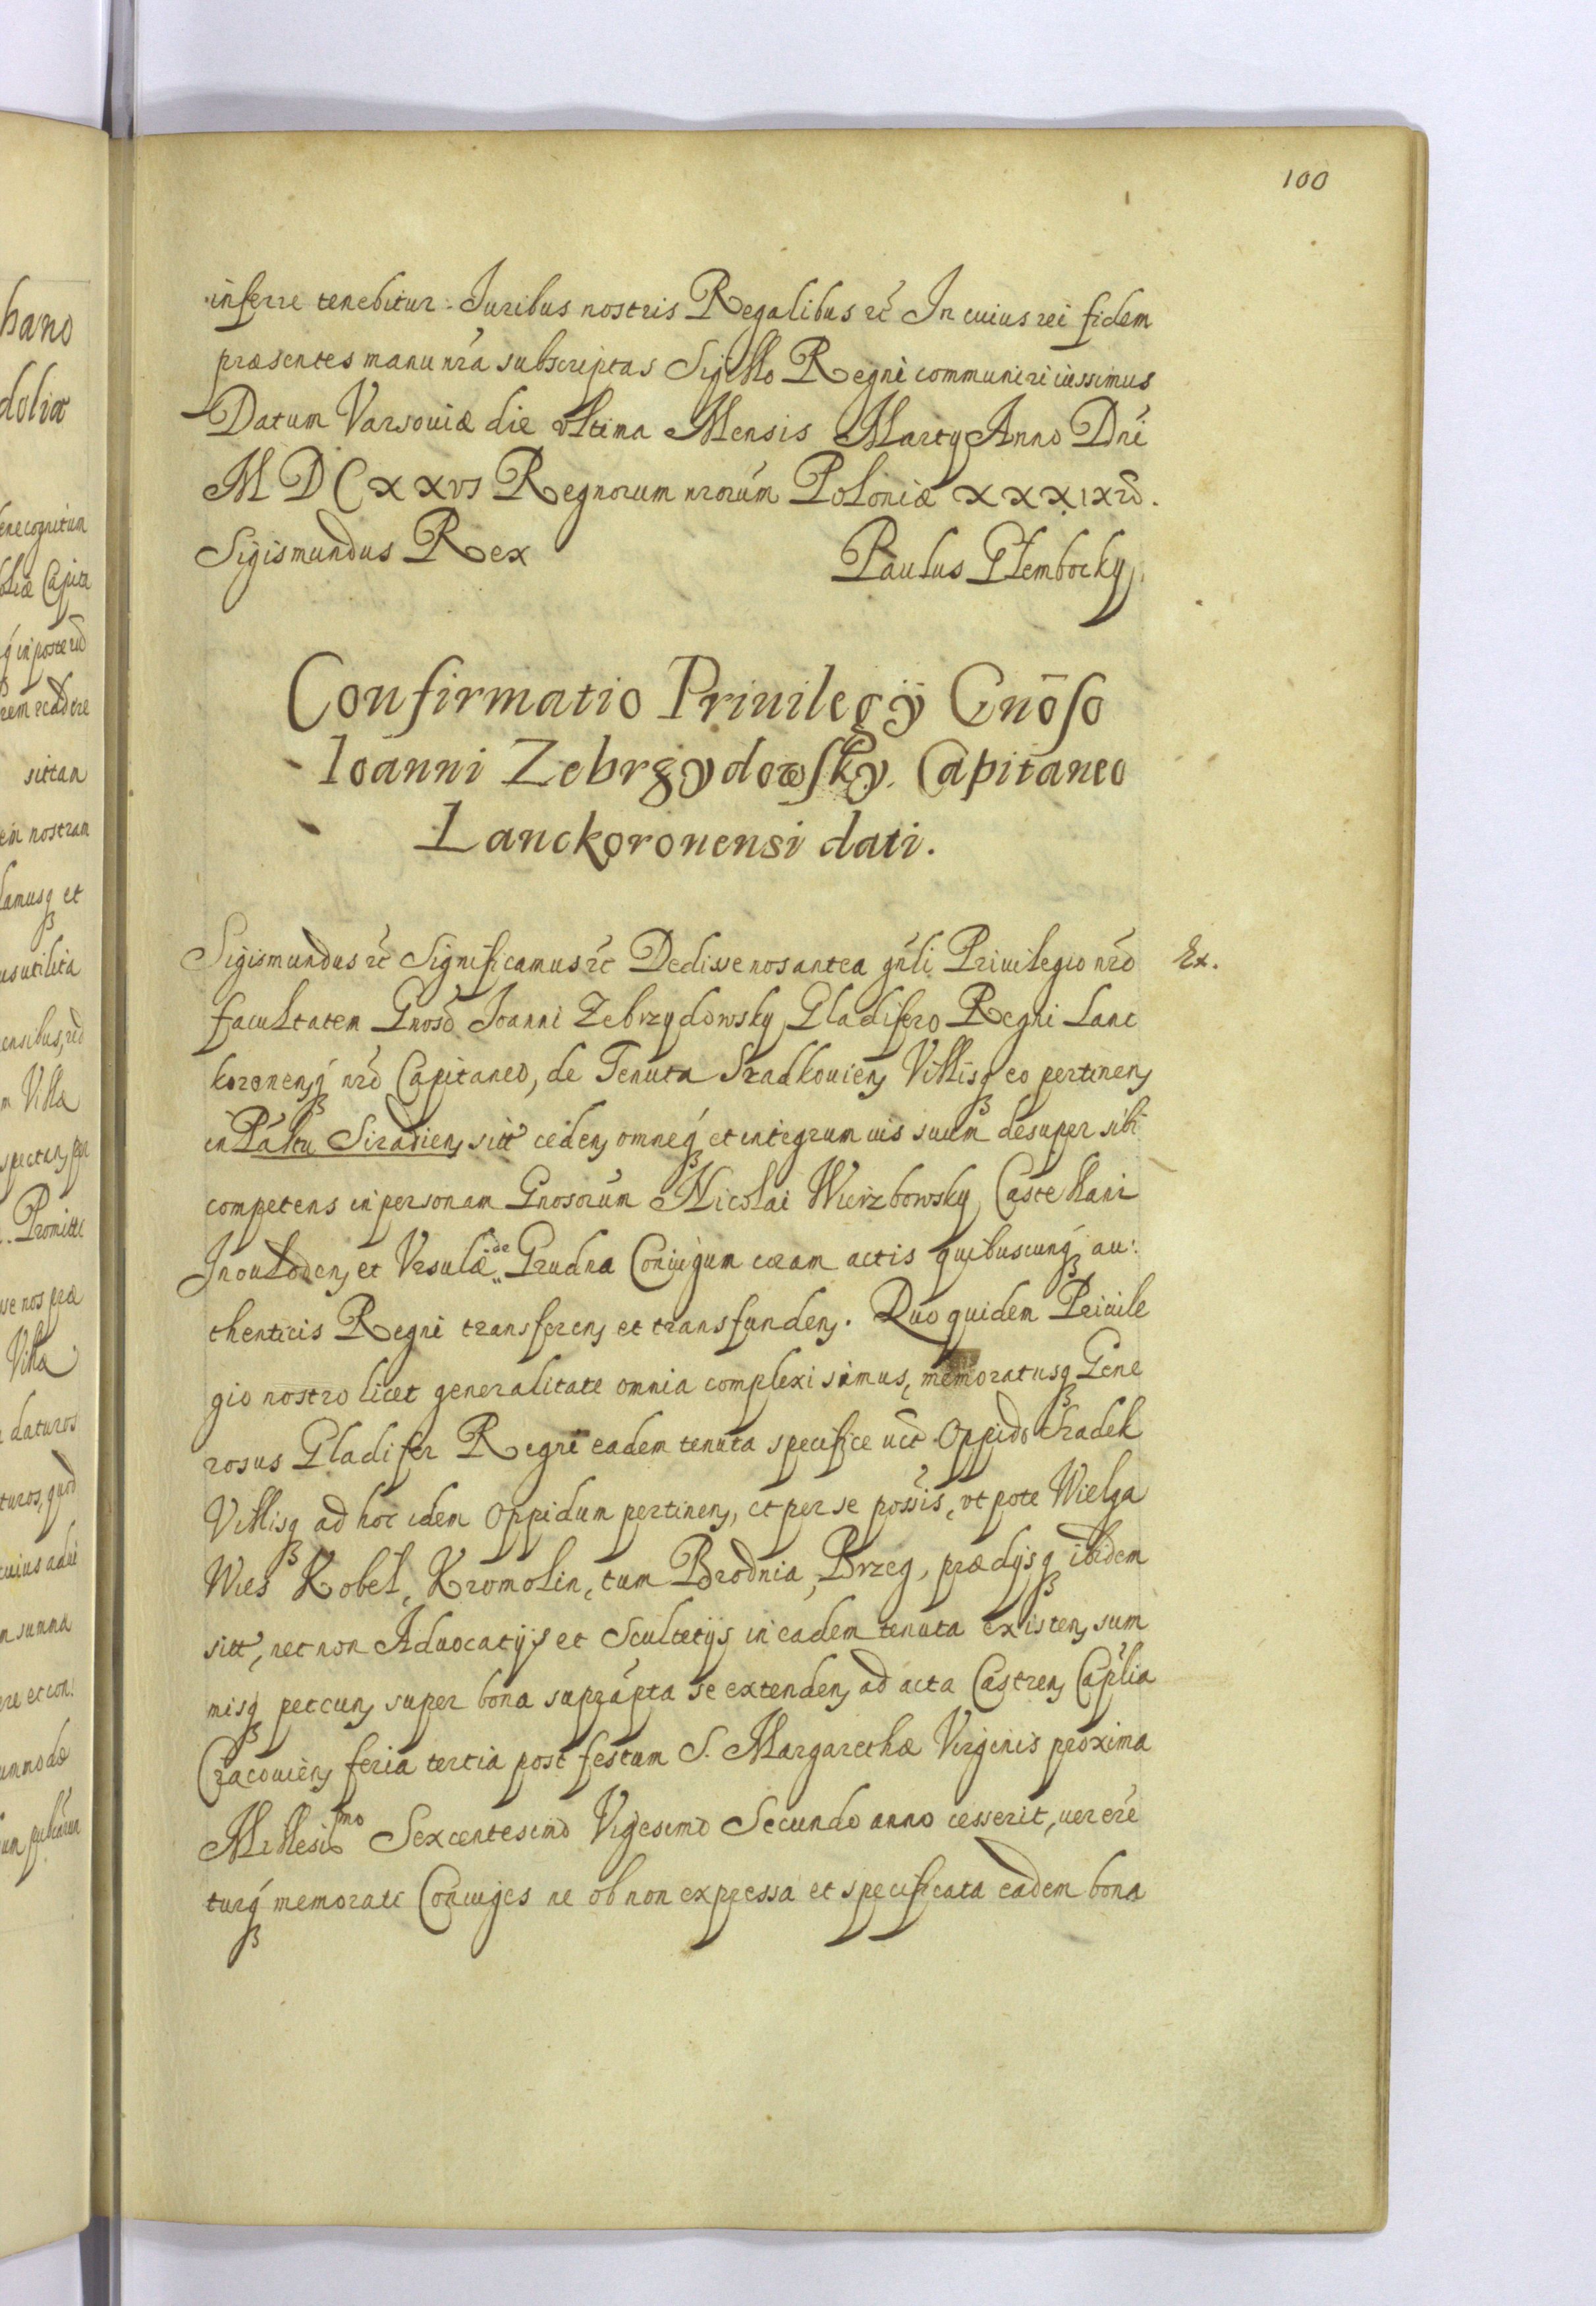 100
inferre tenebitur. Juribus nostris Regalibus rc̃ In cuius rei fidem
præsentes manu nr̃a subscriptas Sigillo Regni communiri iussimus
Datum Varsouiæ die vltima Mensis Martÿ Anno Dn̄i
MDCXXVI Regnorum nrorum̃ Poloniæ XXXIX rc̃.
Sigismundus Rex Paulus Głembocky
Confirmatio Priuilegÿ Gnõso
Ioanni Zebrzydowsky Capitaneo
Lanckoronensi dati.
Sigismundus rc̃ Significamus rc̃ Dedisse nos antea gñli Priuilegio nrõ Ex.
facultatem Gnosõ Joanni Zebrzydowsky Gladifero Regni Lanc
koronensq́ nrõ Capitaneo, de Tenuta Szadkouien, Villisq́ eo pertinen,
in Páłtu Siradien, sitt̃ ceden, omneq́ et integrum ius suum desuper sibi
competens in personam Gnosorum̃ Nicolai Wierzbowsky Castellani
Inouloden, et Vrsulæ de Grudna Coniugum coram actis quibuscunq́ au:
thenticis Regni transferen, et transfunden,. Quo quidem Priuile
gio nostro licet generalitate omnia complexi simus, memoratusq́ Gene
rosus Gladifer Regni eadem tenuta specifice uc̃t Oppido Szadek
Villisq́ ad hoc idem Oppidum pertinen, et per se possis̃, vt pote Wielga
Wies Kobel, Kromolin, tum Brodnia, Brzeg, prædÿsq́ ibidem
sitt̃, nec non Aduocatÿs et Scultetÿs in eadem tenuta existen, sum
misq́ peccun, super bona suprápta se extenden, ad acta Castren, Cap̃lia
Cracouien, feria tertia post festum S. Margarethæ Virginis proxima
Millesimo Sexcentesimo Vigesimo Secundo anno cesserit, uererẽ
turq́ memorati Coniuges ne ob non expressa et specificata eadem bona